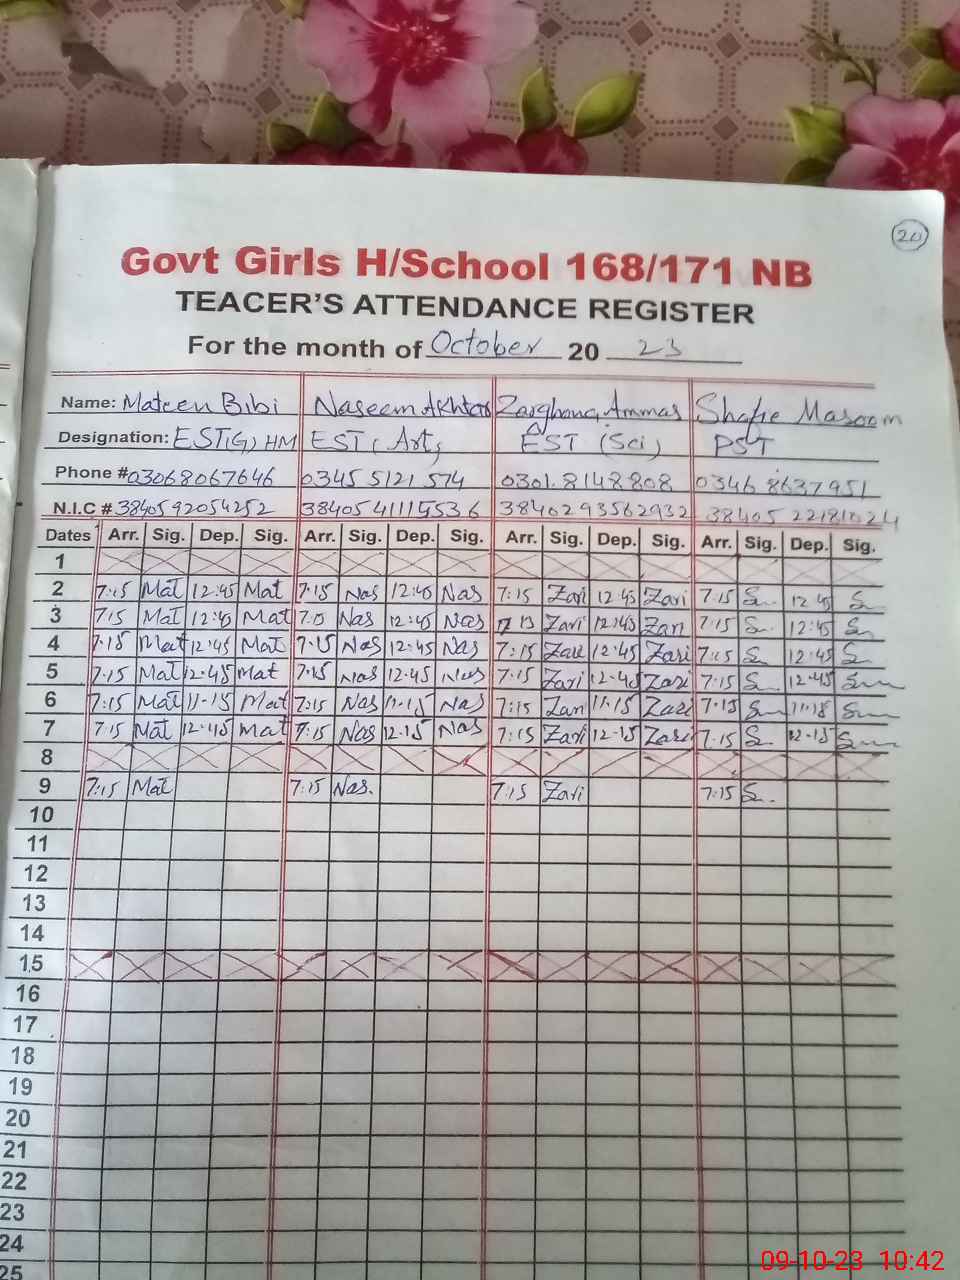 20
Govt Girls H/School 168/171 NB
TEACER'S ATTENDANCE REGISTER
For the month of October 20 23
Name: Mateen Bibi Naseem Akhtar Zarghona Ammas Shafie Masoom
Designation: EST(G) HM EST (Art) EST (Sci) PST
Phone # 03068067646 0345 5121 574 0301.8148808 0346 8637951
N.I.C # 38405 92054252 38405 411145536 38402 93562932 38405 22181024
Dates Arr. Sig. Dep. Sig. Arr. Sig. Dep. Sig. Arr. Sig. Dep. Sig. Arr. Sig. Dep. Sig.
1
2 7:15 Mat 12:45 Mat 7:15 Nas 12:45 Nas 7:15 Zari 12:45 Zari 7:15 12:45
3 7:15 Mat 12:45 Mat Nas 12:45 Nas Zari 12:45 Zari 7:15 12:45
4 7:15 Mat 12:45 Mat 7:15 Nas 12:45 Nas 7:15 Zari 12:45 Zari 7:15 12:45
5 7:15 Mat 12:45 Mat 7:15 Nas 12:45 Nas 7:15 Zari 12:45 Zari 7:15 12:45
6 7:15 Mat 11:15 Mat 7:15 Nas 11:15 Nas 7:15 Zari 11:15 Zari 7:15 11:15
7 7:15 Mat 12:45 Mat 7:15 Nas 12:15 Nas 7:15 Zari 12:15 Zari 7:15 12:15
8
9 7:15 Mat 7:15 Nas. 7:15 Zari 7:15
10
11
12
13
14
15
16
17
18
19
20
21
22
23
24
25
09-10-23 10:42